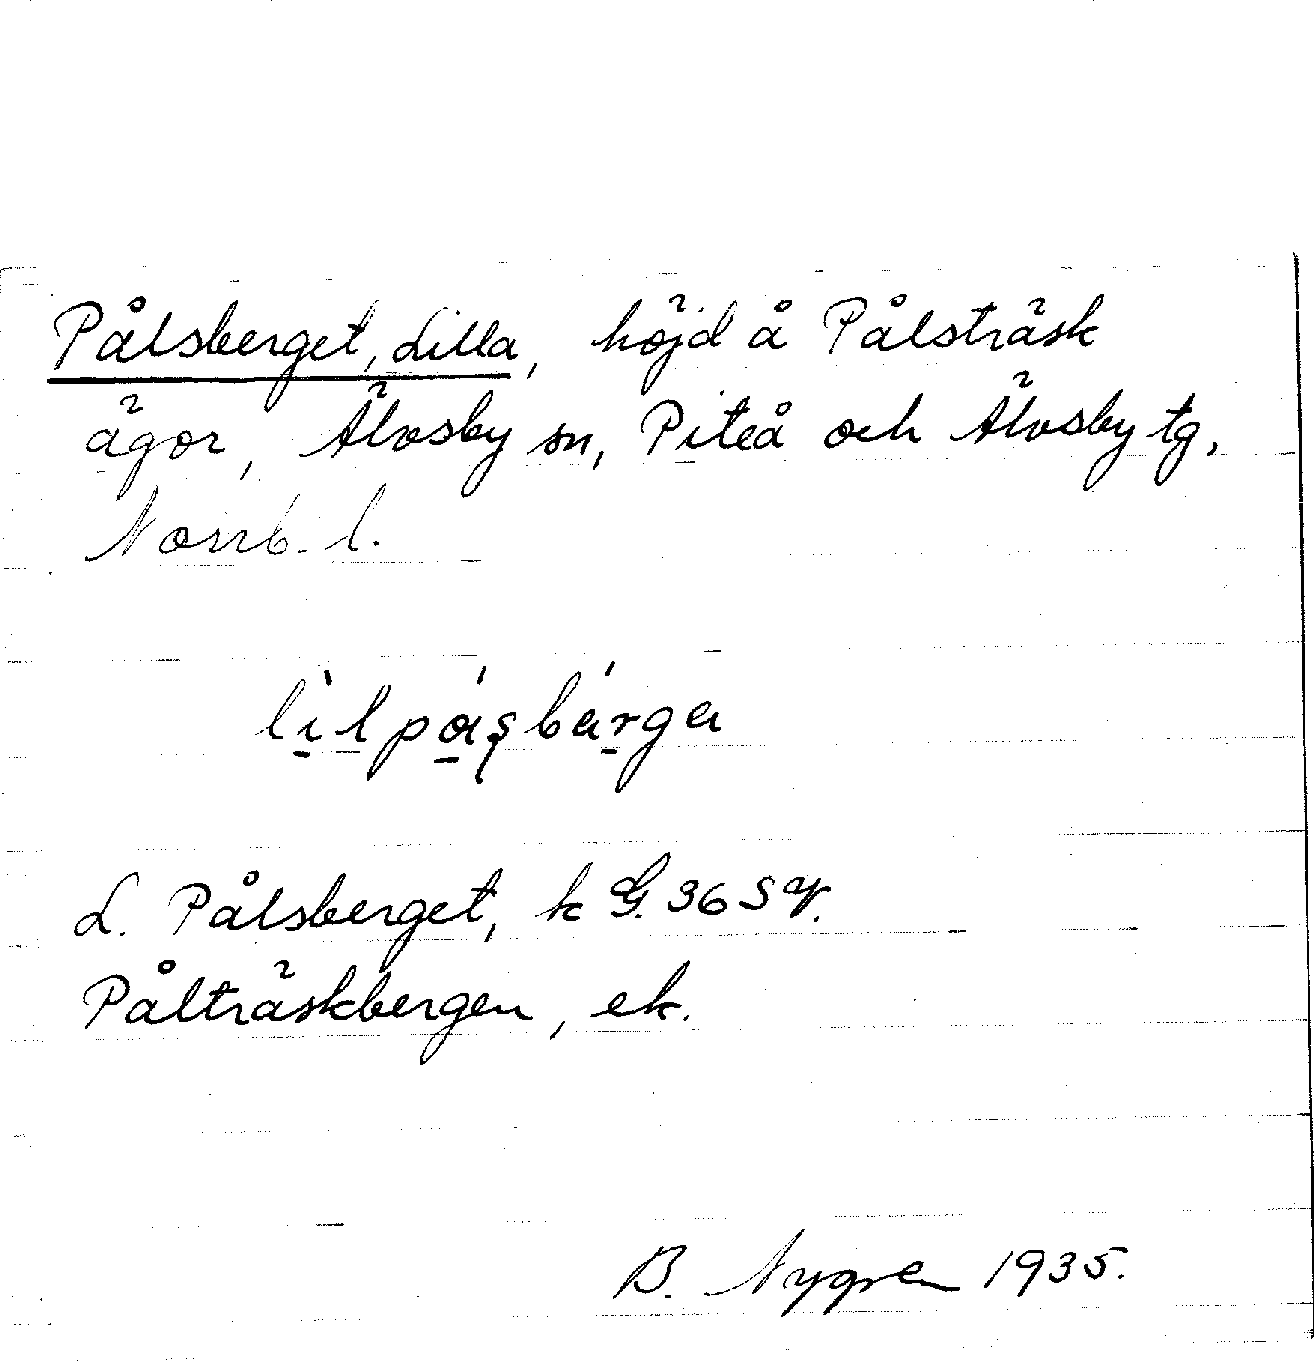 Pålsberget, Lilla, höjd å Pålsträsk
ägor, Älvsby sn, Piteå och Älvsby tg,
Norrb. l.
L. Pålsberget, k G. 36 SV.
Pålträskbergen, ek.
B. Nygren 1935.